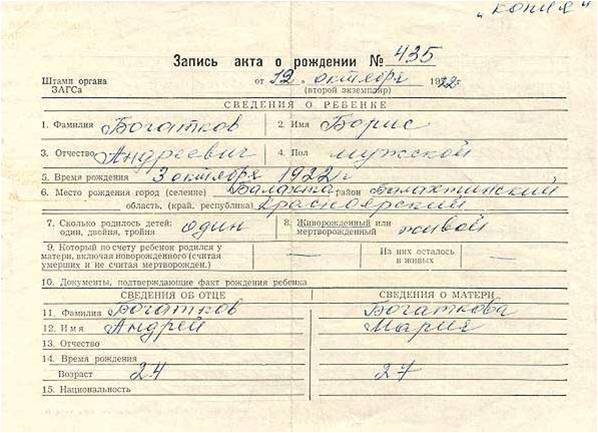 „копия"
Запись акта о рождении № 435
Штамп органа ЗАГСа
от 12 октября 1922 г
(второй экземпляр)
СВЕДЕНИЯ О РЕБЕНКЕ
1. Фамилия Богатков 2. Имя Борис
3. Отчество Андреевич 4. Пол мужской
5. Время рождения 3 октября 1922 г
6. Место рождения город (селение) Балахта район Балахтинский
область, (край, республика) Красноярский
7. Сколько родилось детей: один, двойня, тройня один 8. Живорожденный или мертворожденный живой
9. Который по счету ребенок родился у матери, включая новорожденного (считая умерших и не считая мертворожден.) — Из них осталось в живых —
10. Документы, подтверждающие факт рождения ребенка
СВЕДЕНИЯ ОБ ОТЦЕ СВЕДЕНИЯ О МАТЕРИ
11. Фамилия Богатков Богаткова
12. Имя Андрей Мария
13. Отчество
14. Время рождения
Возраст 24 27
15. Национальность